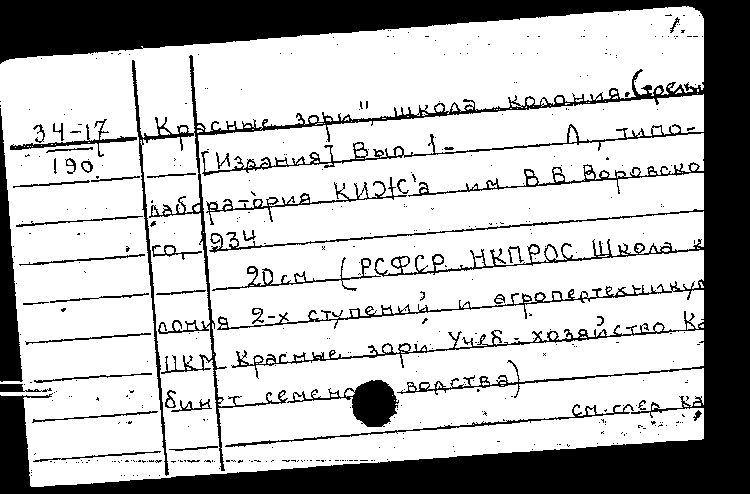 1.
34-17 „Красные зори", школа колония. (
190 [Издания] Вып. 1- Л., типо-
лаборатория КИЖ'а им В.В. Воровско
го, 1934
20 см. (РСФСР. НКПРОС Школа к
лония 2-х ступений и агропертехникум
ШКМ Красные зори. Учеб.-хозяйство Ка
бинет семено водства)
см. след ка